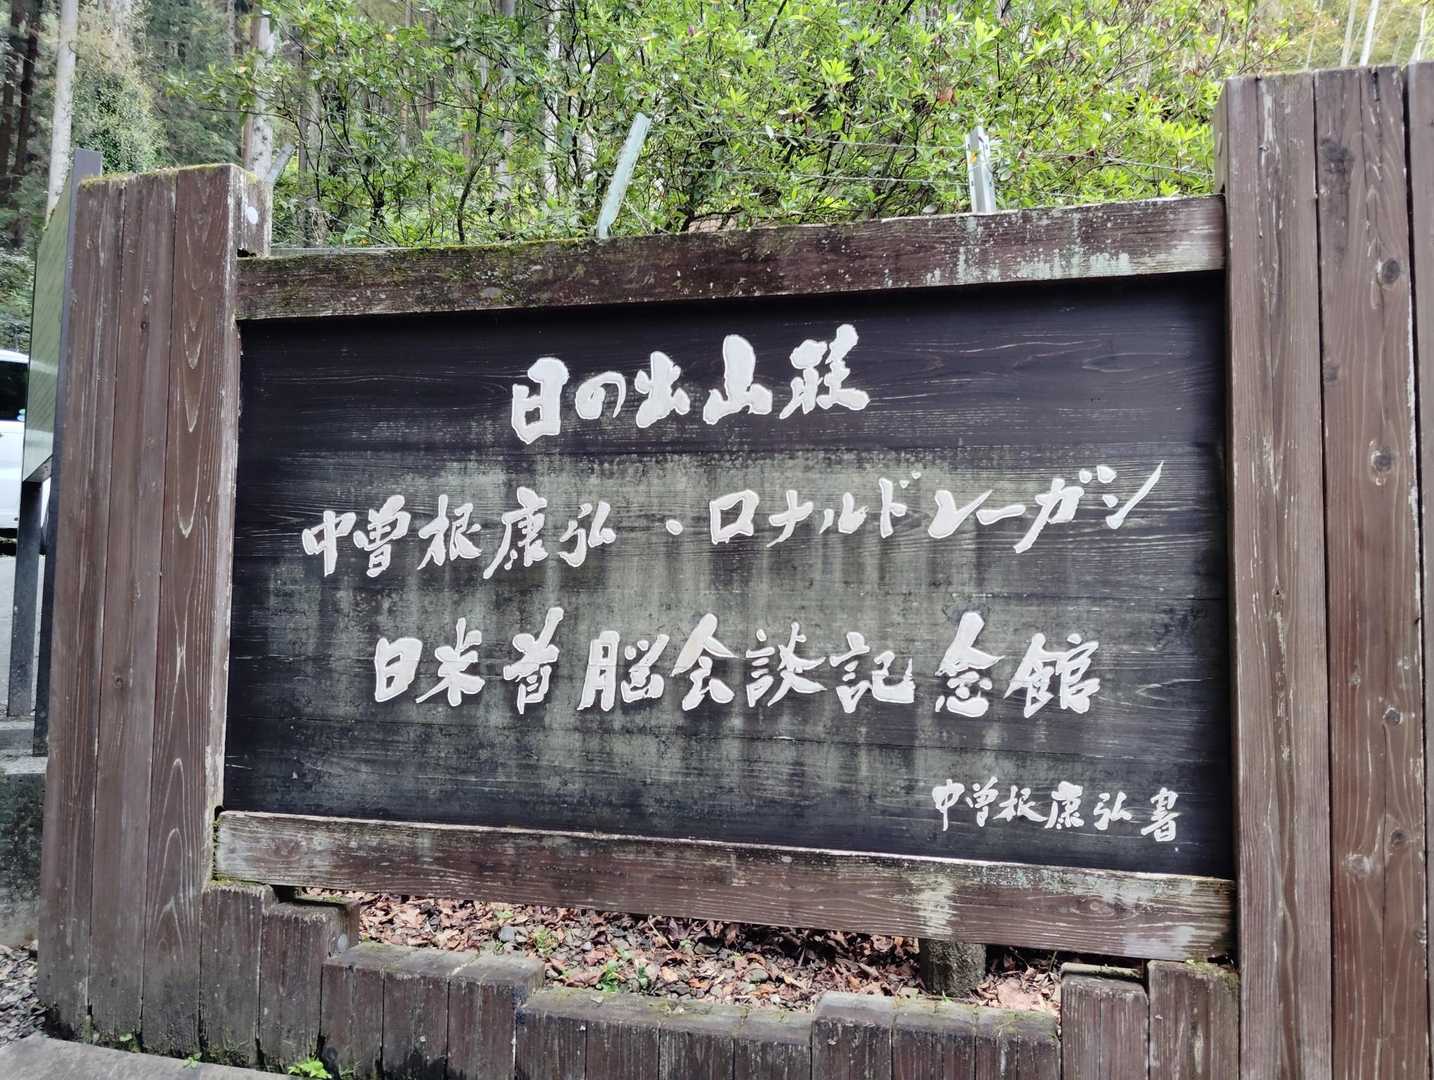 日の出山荘
中曽根康弘・ロナルドレーガン
日米首脳会談記念館
中曽根康弘書